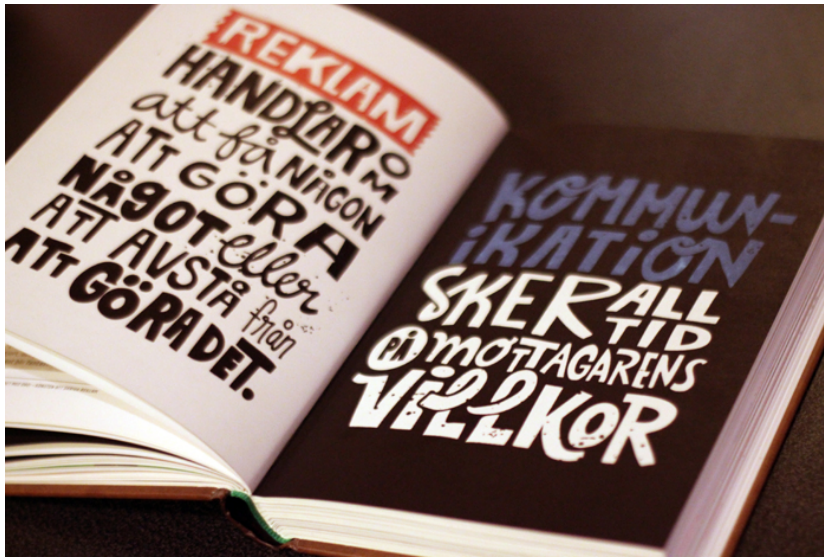 REKLAM
HANDLAR OM
att få NÅGON
ATT GÖRA
NÅGOT eller
ATT AVSTÅ från
ATT GÖRA DET.
KOMMUN-
iKATiON
SKER ALLTID
PÅ MOTTAGARENS
ViLLKOR